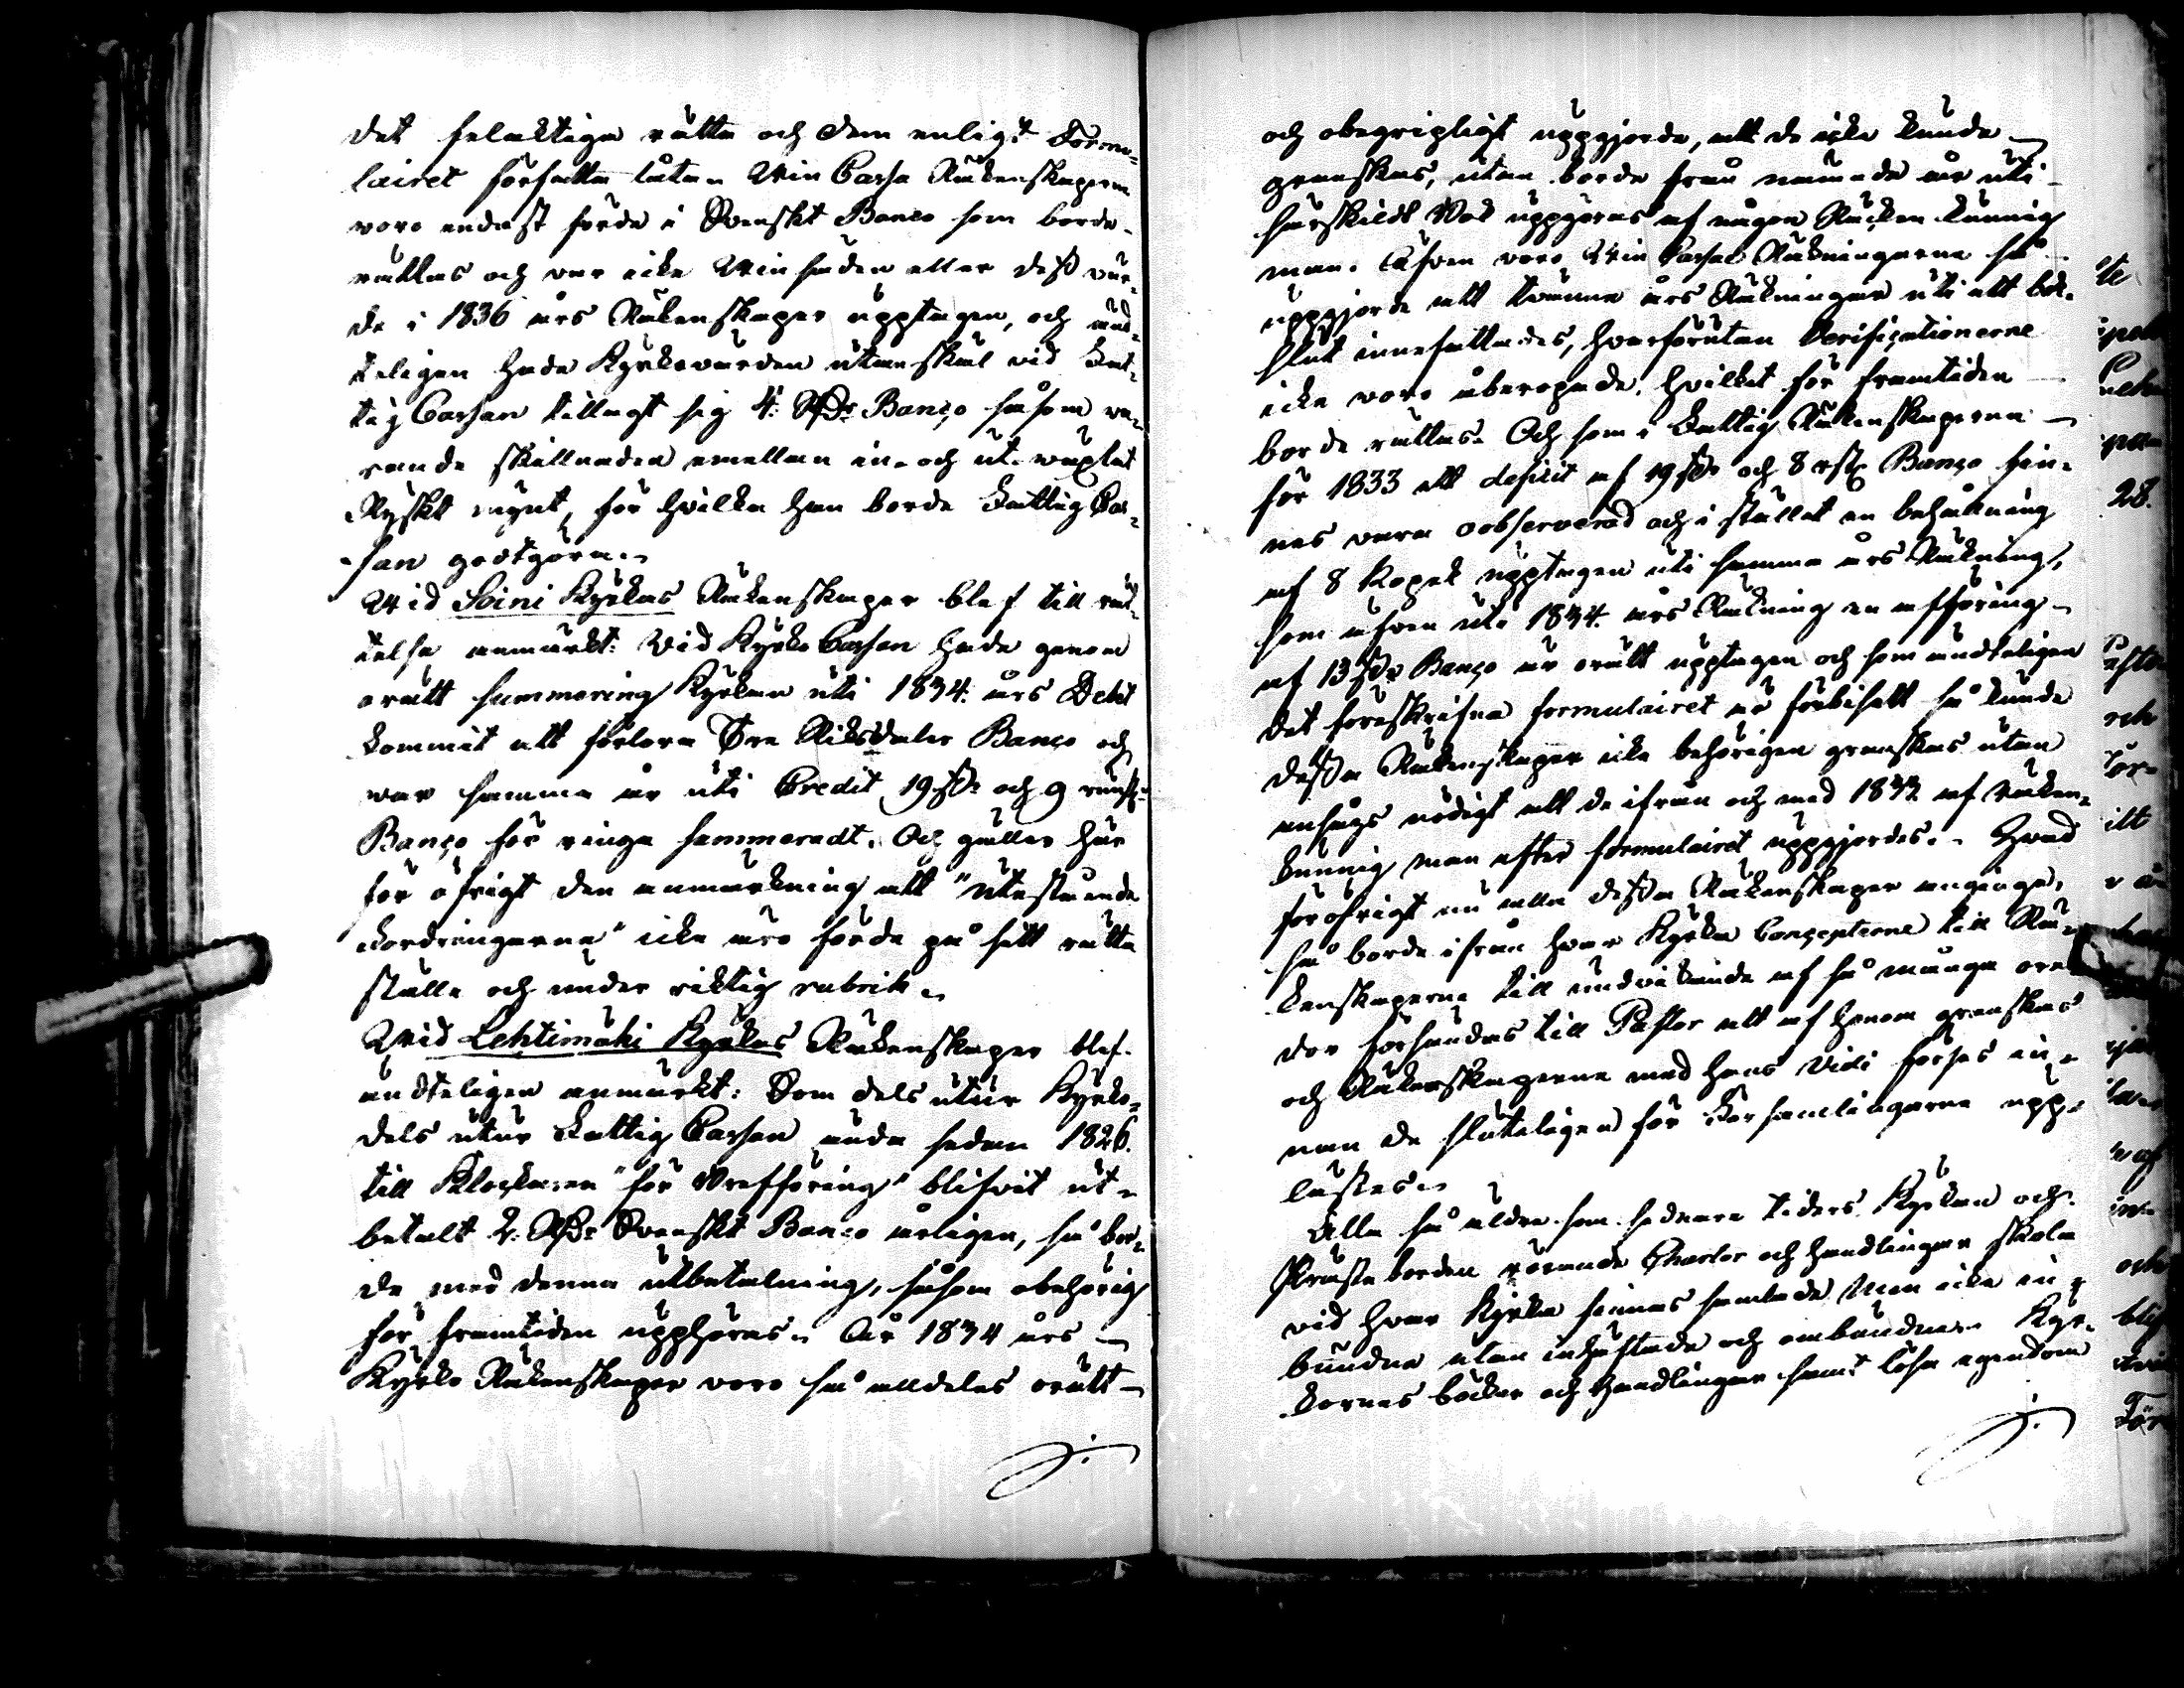 det felaktiga rätta och dem enligt Formu-
lairet författa låta. Win Cassa Räkenskaperne
voro endast förde i Svenskt Banco som borde
rättas och var icke Winsäden eller dess vär-
de i 1836 års Räkenskaper upptagen, och änd-
teligen hade Kyrkovärden utan skäl vid Fat-
tig Cassan tillagt sig 4: RDr Banco såsom va-
rande skillnaden emellan in- och ut-wäxlat
Ryskt mynt, för hvilka han borde Fattig Cas-
san godtgöra.
Wid Soini Kyrkas Räkenskaper blef till rät-
telse anmärkt: Vid Kyrko Cassan hade genom
orätt summering Kyrkan uti 1834 års Debet
kommit att förlora Tre Riksdaler Banco och
war samma år uti Credit 19 sk. och 9 runst.
Banco för ringa summeradt. Och gäller här
för öfrigt den anmärkning att "Utestående
Fordringarna" icke äro förde på sitt rätta
ställe och under riktig rubrik.
Wid Lehtimäki Kyrkas Räkenskaper blef
ändteligen anmärkt: Som dels utur Kyrko-
dels utur Fattig Cassan ända sedan 1826
till Klockaren "för Skrifföring" blifvit ut-
betalt 2. RDr Svenskt Banco årligen, så bor-
de med denna utbetalning, såsom obehörig
för framtiden upphöras. År 1834 års
Kyrko Räkenskaper voro så alldeles orätt
och obegripligt uppgjorde, att de icke kunde
granskas, utan borde från nämnde år uti
särskildt Bok uppgöras af någon Räken kunnig
man. Äfven voro Win Cassae Räkningarne så
uppgjorde att tvänne års Räkningar uti ett bok-
slut innefattades, hvarförutan Verificationerne
icke voro åberopade, hvilket för framtiden
borde rättas. Och som i Fattig Räkenskaperna
för 1833 ett deficit af 19 sk. och 8 rst. Banco fin-
nes vara oobserverad och i stället en behållning
af 8 Kopek upptagen uti samma års Räkning,
som äfven uti 1834 års Räkning en afföring
af 13 sk. Banco är orätt upptagen och som ändteligen
det föreskrifna formulairet är förbisett så kunde
dessa Räkenskaper icke behörigen granskas utan
ansågs nödigt att de ifrån och med 1833 af räken-
kunnig man efter formulairet uppgjordes. Hvad
föröfrigt nu alla dessa Räkenskaper angingo,
så borde ifrån hvar Kyrka Concepterne till Rä-
kenskaperne till undvikande af så många ore-
dor försändas till Pastor att af honom granskas
och Räkenskaperne med hans Vidi förses in-
nan de slutligen för Församlingarne upp-
lästes.
Alla så äldre som sednare tiders Kyrkan och
Prästeborden rörande Chartor och handlingar skola
vid hvar Kyrka finnas samlade men icke in-
bundna utan inhäftade och ombundne. Kyr-
kornas böcker och handlingar samt lösa egendom